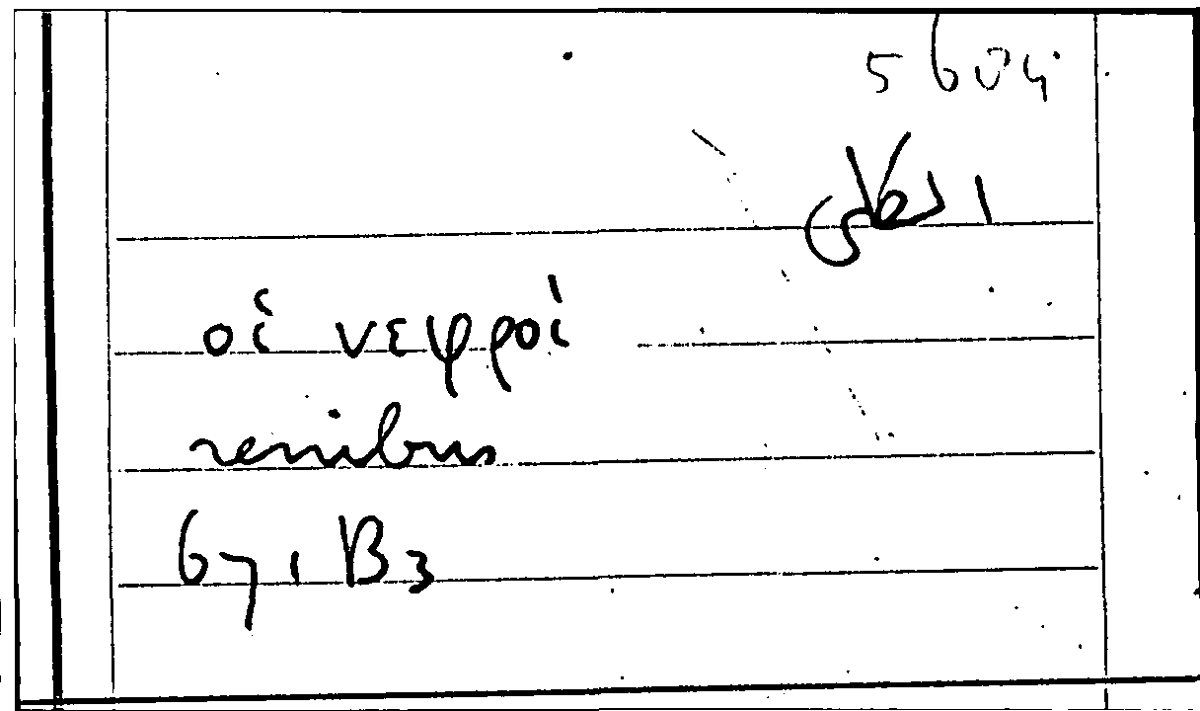 5604
الكلى
οἱ νεφροί
renibus
671 B3